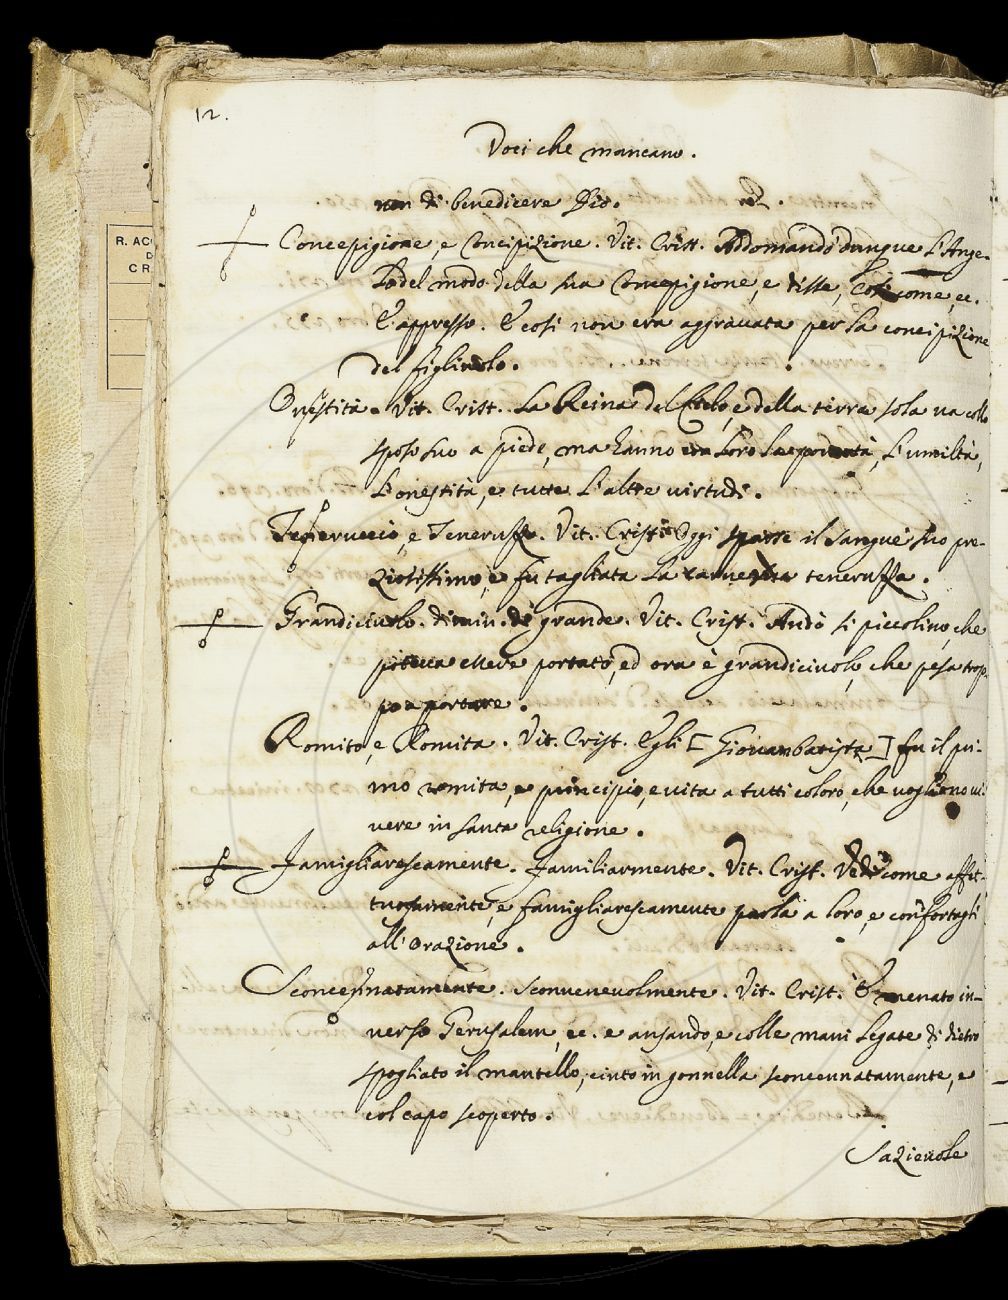 12.
Voci che mancano.
non di benedicere Dio.
Concepigione, e Concipizione. Vit. Crist. Addomandò dunque l'Ange-
lo del modo della sua Concepigione, e disse, Così come, ec.
E appresso. E così non era aggravata per la concipizione
del figliuolo.
Onestità. Vit. Crist. La Reina del Cielo, e della terra sola va collo
sposo suo a piede, ma hanno con loro la povertà, l'umiltà,
l'onestità, e tutte l'altre virtudi.
Teneruccio, e Teneruzzo. Vit. Crist. Oggi sparse il sangue suo pre-
ziosissimo, e fu tagliata la carne sua teneruzza.
Grandiciuolo. dimin. di grande. Vit. Crist. Andò sì piccolino, che
poteva essere portato, ed ora è grandiciuolo, che pesa trop-
po a portare.
Romito, e Romita. Vit. Crist. Egli [Giovambatista] fu il pri-
mo romita, e principio, e vita a tutti coloro, che vogliono vi-
vere in santa religione.
Famigliarescamente. Familiarmente. Vit. Crist. Vedi come affet-
tuosamente, e famigliarescamente parla a loro, e confortagli
all'orazione.
Sconcennatamente. Sconvenevolmente. Vit. Crist. È menato in-
verso Gerusalem, ec. e ansando, e colle mani legate di dietro
spogliato il mantello, cinto in gonnella sconcennatamente, e
col capo scoperto.
Sazievole
R. AC
D
CR